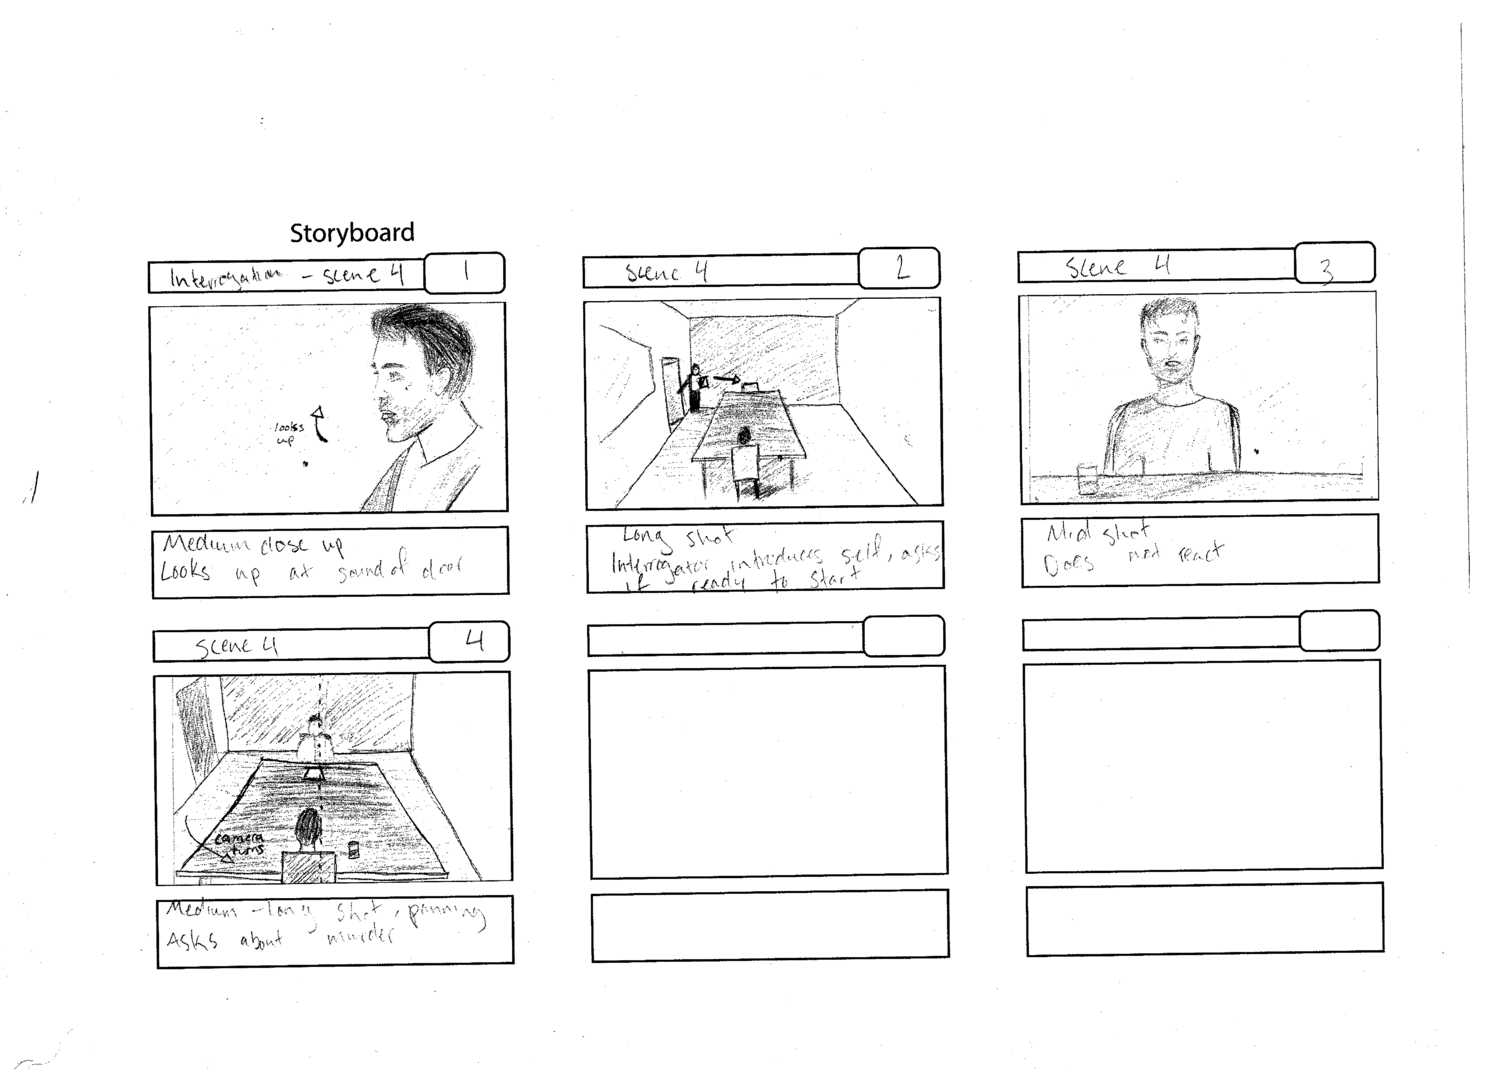 Storyboard
Interrogation - scene 4
1
looks
up
Medium close up
Looks up at sound of door
Scene 4
2
Long shot
Interrogator introduces self, asks
if ready to start
Scene 4
3
Mid shot
Does not react
Scene 4
4
camera
turns
Medium-long shot, panning
Asks about murder